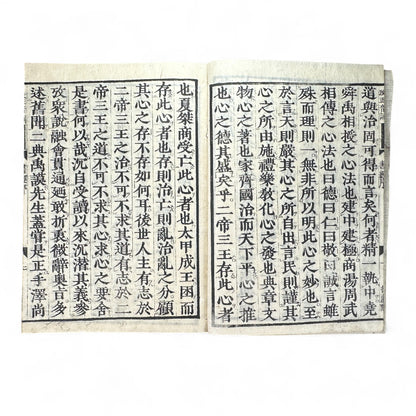 道與治固可得而言矣何者精一執中堯
舜禹相授之心法也建中建極商湯周武
相傳之心法也曰德曰仁曰敬曰誠言雖
殊而理則一無非所以明此心之妙也至
於言天則嚴其心之所自出言民則謹其
心之所由施禮樂敎化心之發也典章文
物心之著也家齊國治而天下平心之推
也心之德其盛矣乎二帝三王存此心者
也夏桀商受亡此心者也太甲成王困而
存此心者也存則治亡則亂治亂之分顧
其心之存不存如何耳後世人主有志於
二帝三王之治不可不求其道有志於二
帝三王之道不可不求其心求心之要舍
是書何以哉沉自受讀以來沉潛其義參
攷衆說融會貫通廼敢折衷微辭奧旨多
述舊聞二典禹謨先生蓋嘗是正手澤尚